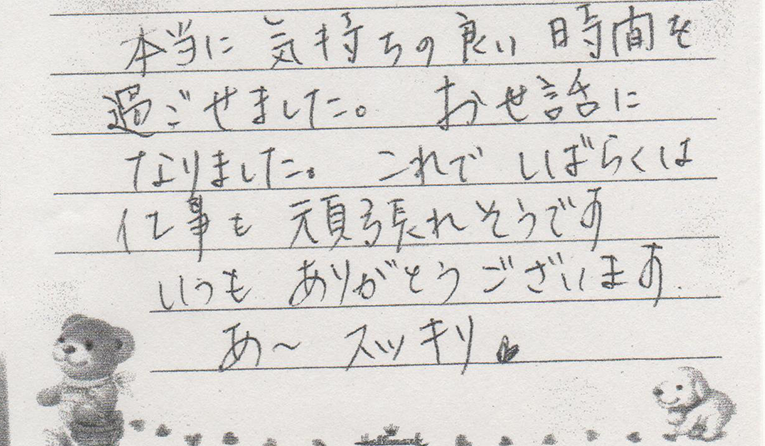 本当に 気持ちの良い 時間を
過ごせました。 おせ話に
なりました。 これで しばらくは
仕事も 頑張れそうです
いつも ありがとうございます.
あ〜 スッキリ